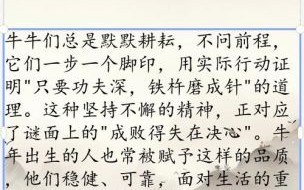 牛牛们总是默默耕耘，不问前程，
它们一步一个脚印，用实际行动证
明"只要功夫深，铁杵磨成针"的道
理。这种坚持不懈的精神，正对应
了谜面上的"成败得失在决心"。牛
年出生的人也常被赋予这样的品质
，他们稳健、可靠，面对生活的重